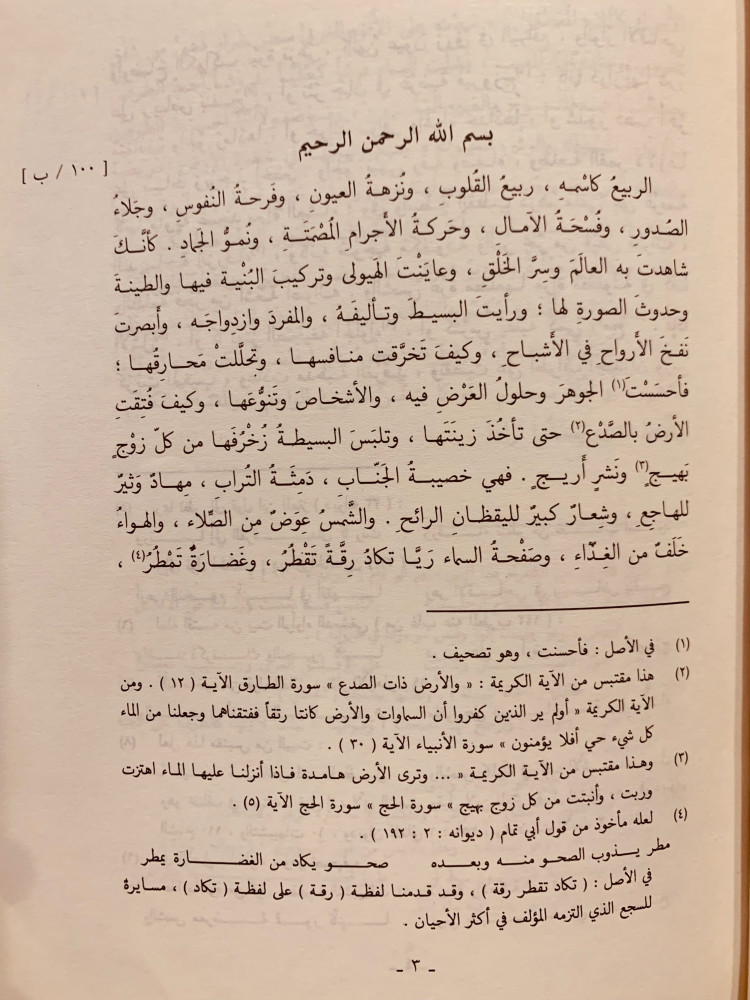 بسم الله الرحمن الرحيم
[ ١٠٠ / ب ]
الربيعُ كاسْمهِ ، ربيعُ القُلوبِ ، ونُزهةُ العيونِ ، وفَرحةُ النُفوسِ ، وجَلاءُ
الصُدورِ ، وفُسْحَةُ الآمالِ ، وحَركةُ الأجرامِ المُصْمَتَةِ ، ونُموُّ الجَمادِ . كأنَّكَ
شاهدتَ به العالَمَ وسِرَّ الخَلْقِ ، وعايَنْتَ الهَيولى وتركيبَ البُنْية فيها والطينةَ
وحدوثَ الصورةِ لها ؛ ورأيتَ البسيطَ وتأليفَهُ ، والمفردَ وازدواجَه ، وأبصرتَ
نَفخَ الأرواحِ في الأشباحِ ، وكيفَ تَخرَّقت منافسها ، وتحلَّلتْ مَحارِقُها ؛
فأحسَسْتَ(١) الجوهرَ وحلولَ العَرْضِ فيه ، والأشخاصَ وتَنوُّعَها ، وكيفَ فُتِقَتِ
الأرضُ بالصَّدْعِ(٢) حتى تأخُذَ زينَتَها ، وتلبَسَ البسيطةُ زُخْرُفَها من كلّ زوْجٍ
بَهيجٍ(٣) ونَشرٍ أَريجٍ . فهي خصيبةُ الجَنّابِ ، دَمِثَةُ الترابِ ، مِهادٌ وَثيرٌ
للهاجعِ ، وشِعارٌ كبيرٌ لليقظانِ الرائحِ . والشَّمسُ عِوَضٌ مِن الصِّلاء ، والهواءُ
خَلَفٌ من الغِذّاءِ ، وصَفْحةُ السماء رَيَّا تكادُ رِقَّةً تَقْطُرُ ، وغَضارَةٌ تَمْطُرُ(٤) ،
(١) في الأصل : فأحسنت ، وهو تصحيف .
(٢) هذا مقتبس من الآية الكريمة : « والأرض ذات الصدع » سورة الطارق الآية ( ١٢ ) . ومن
الآية الكريمة « أولم ير الذين كفروا أن السماوات والأرض كانتا رتقاً ففتقناهما وجعلنا من الماء
كل شيء حي أفلا يؤمنون » سورة الأنبياء الآية ( ٣٠ ) .
(٣) وهذا مقتبس من الآية الكريمة « ... وترى الأرض هامدة فاذا أنزلنا عليها الماء اهتزت
وربت ، وأنبتت من كل زوج بهيج » سورة الحج » سورة الحج الآية (٥) .
(٤) لعله مأخوذ من قول أبي تمام ( ديوانه : ٢ : ١٩٢ ) .
مطر يذوب الصحو منه وبعده صحو يكاد من الغضارة يمطر
في الأصل : ( تكاد تقطر رقة ) ، وقد قدمنا لفظة ( رقة ) على لفظة ( تكاد ) ، مسايرة
للسجع الذي التزمه المؤلف في أكثر الأحيان .
- ٣ -